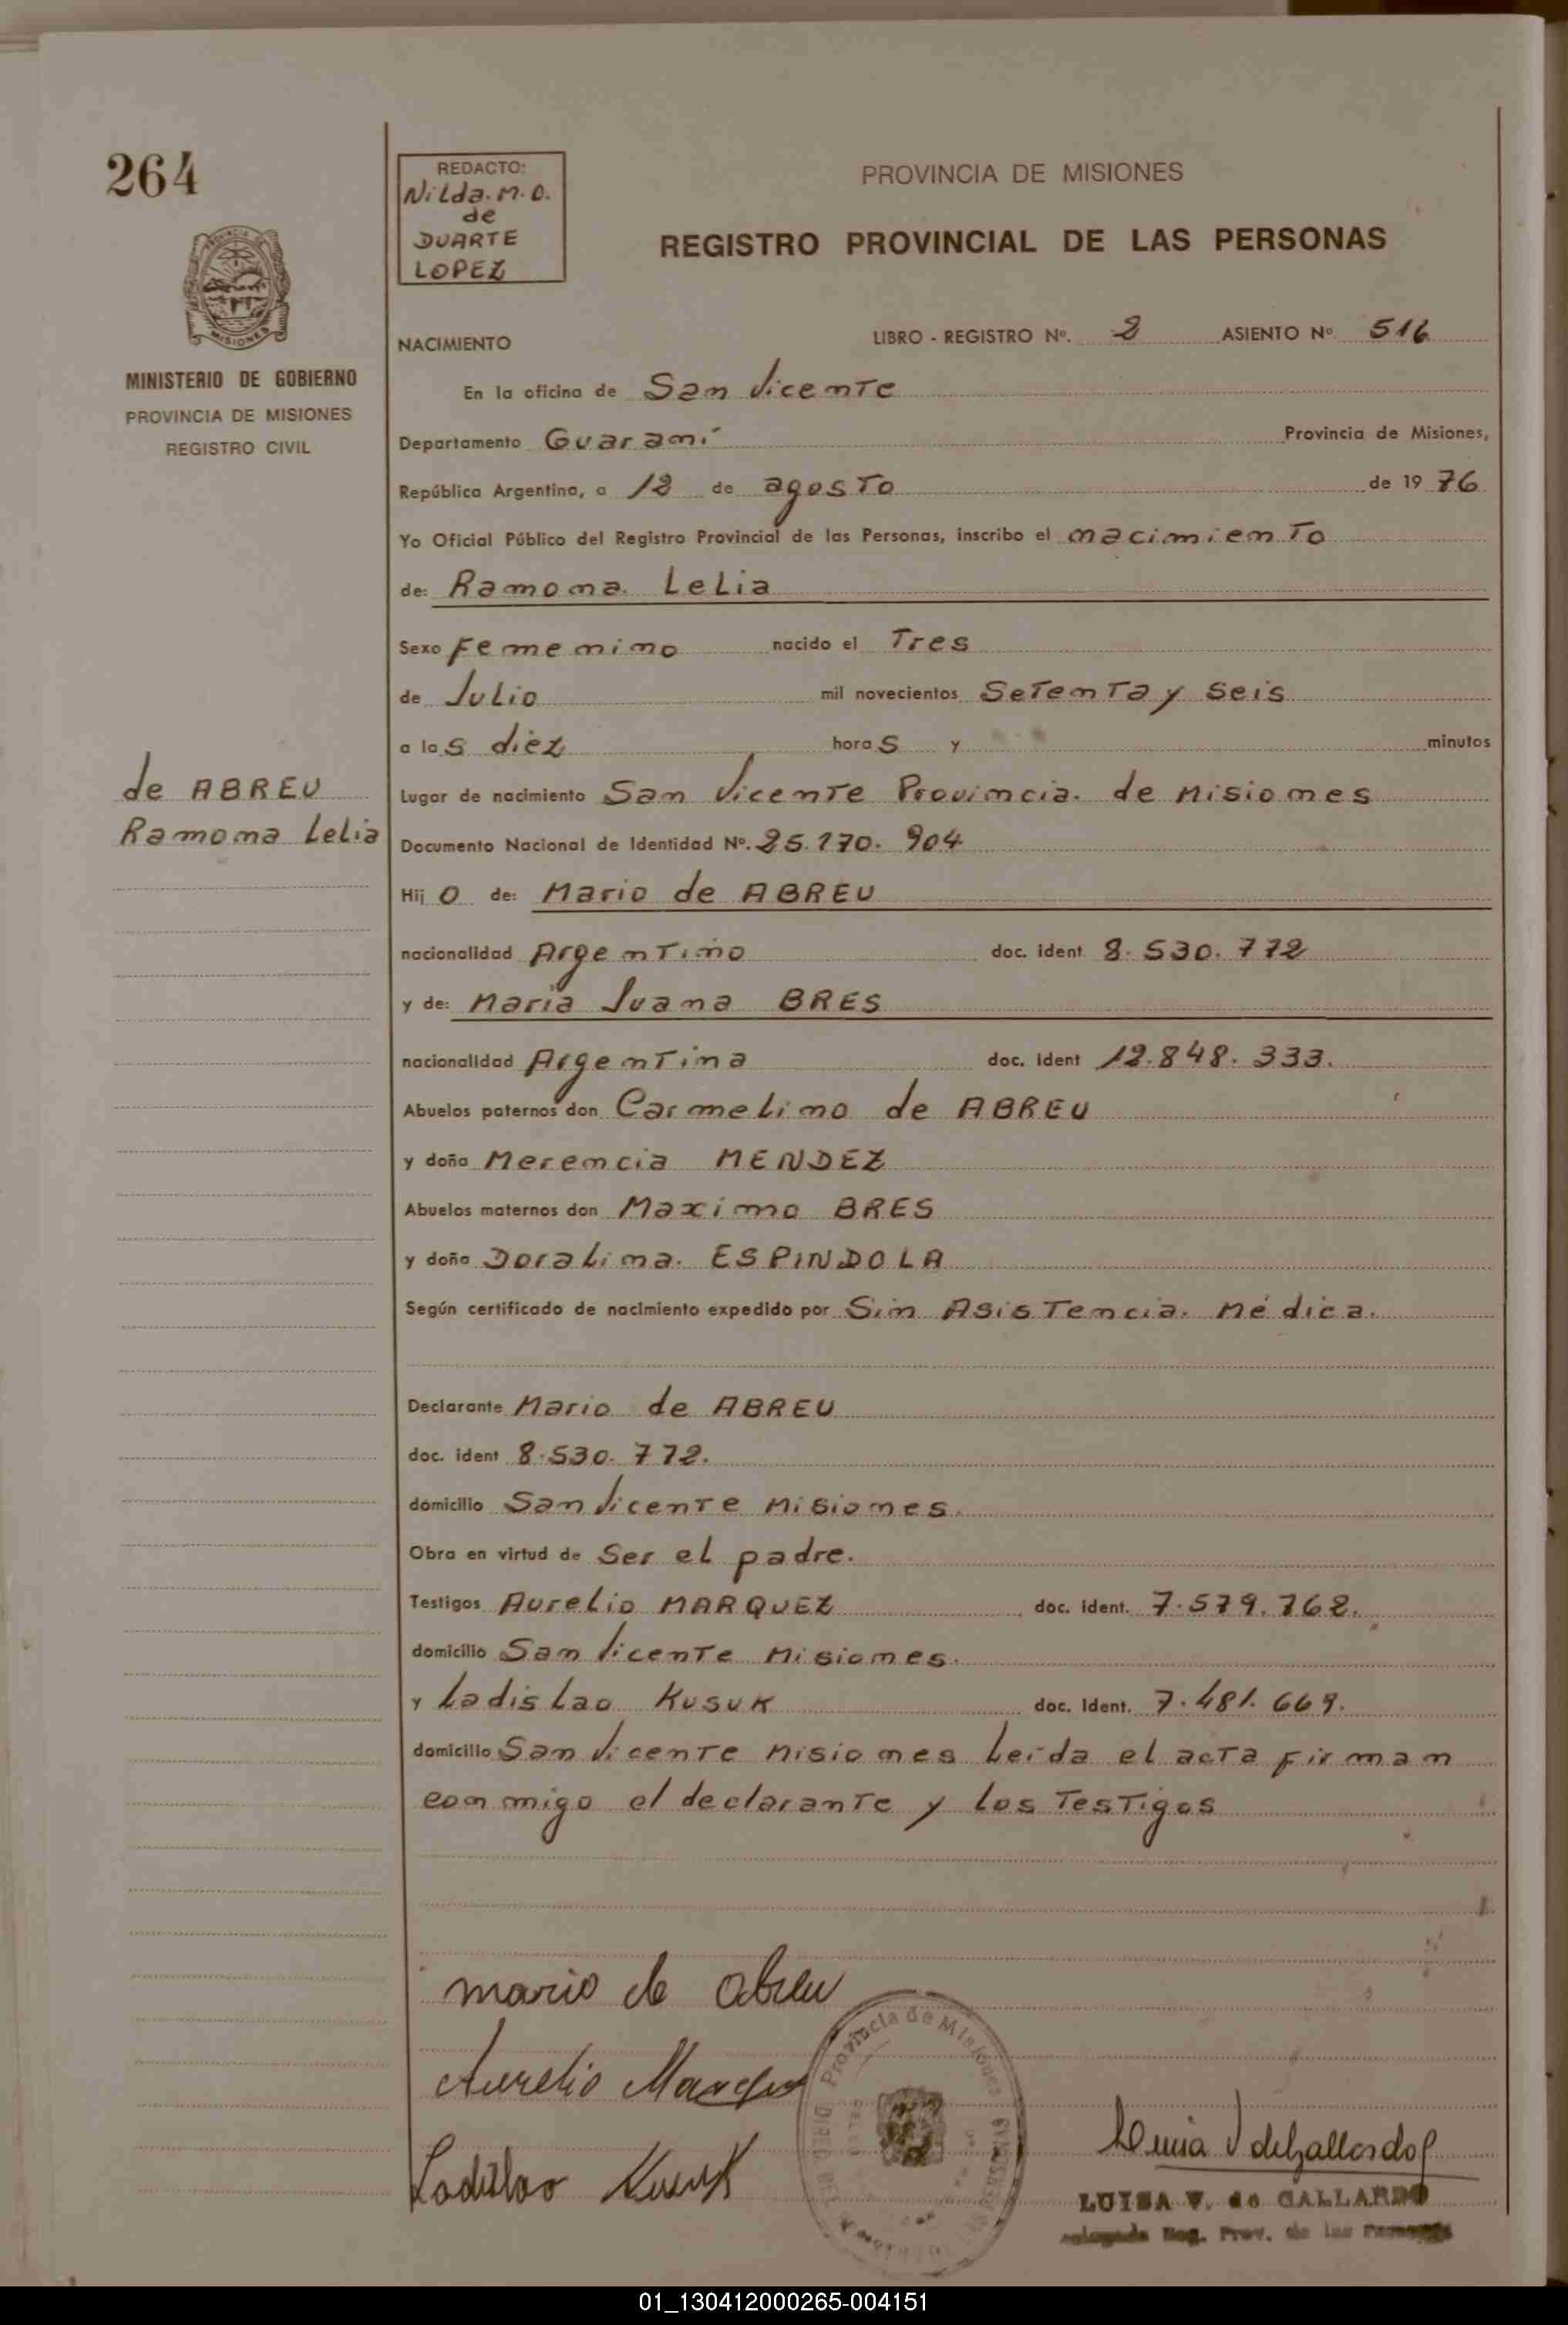 264
REDACTO:
Nilda. M. O.
de
DUARTE
LOPEZ
PROVINCIA DE MISIONES
REGISTRO PROVINCIAL DE LAS PERSONAS
MISIONES
MINISTERIO DE GOBIERNO
PROVINCIA DE MISIONES
REGISTRO CIVIL
NACIMIENTO LIBRO - REGISTRO Nº. 2 ASIENTO Nº 516
En la oficina de San Vicente
Departamento Guaraní Provincia de Misiones,
República Argentina, a 12 de agosto de 1976
Yo Oficial Público del Registro Provincial de las Personas, inscribo el nacimiento
de: Ramona. Lelia
Sexo Femenino nacido el Tres
de Julio mil novecientos Setenta y Seis
a las diez horas y minutos
de ABREU
Ramona Lelia
Lugar de nacimiento San Vicente Provincia. de Misiones
Documento Nacional de Identidad Nº. 25.170. 904
Hijo de: Mario de ABREU
nacionalidad Argentino doc. ident 8.530.772
y de: Maria Juana BRES
nacionalidad Argentina doc. ident 12.848.333.
Abuelos paternos don Carmelino de ABREU
y doña Merencia MENDEZ
Abuelos maternos don Maximo BRES
y doña Doralina. ESPINDOLA
Según certificado de nacimiento expedido por Sin Asistencia. Médica.
Declarante Mario de ABREU
doc. ident 8.530.772.
domicilio San Vicente Misiones.
Obra en virtud de Ser el padre.
Testigos Aurelio MARQUEZ doc. ident. 7.579.762.
domicilio San Vicente Misiones.
y Ladislao KUSUK doc. ident. 7.481.669.
domicilio San Vicente Misiones Leída el acta firman
conmigo el declarante y los Testigos
mario de abreu
Aurelio Marquez
Ladislao Kusuk
Provincia de Misiones
LAS PERSONAS
LUISA V. de GALLARDO
Reg. Prov. de las Personas
01_130412000265-004151